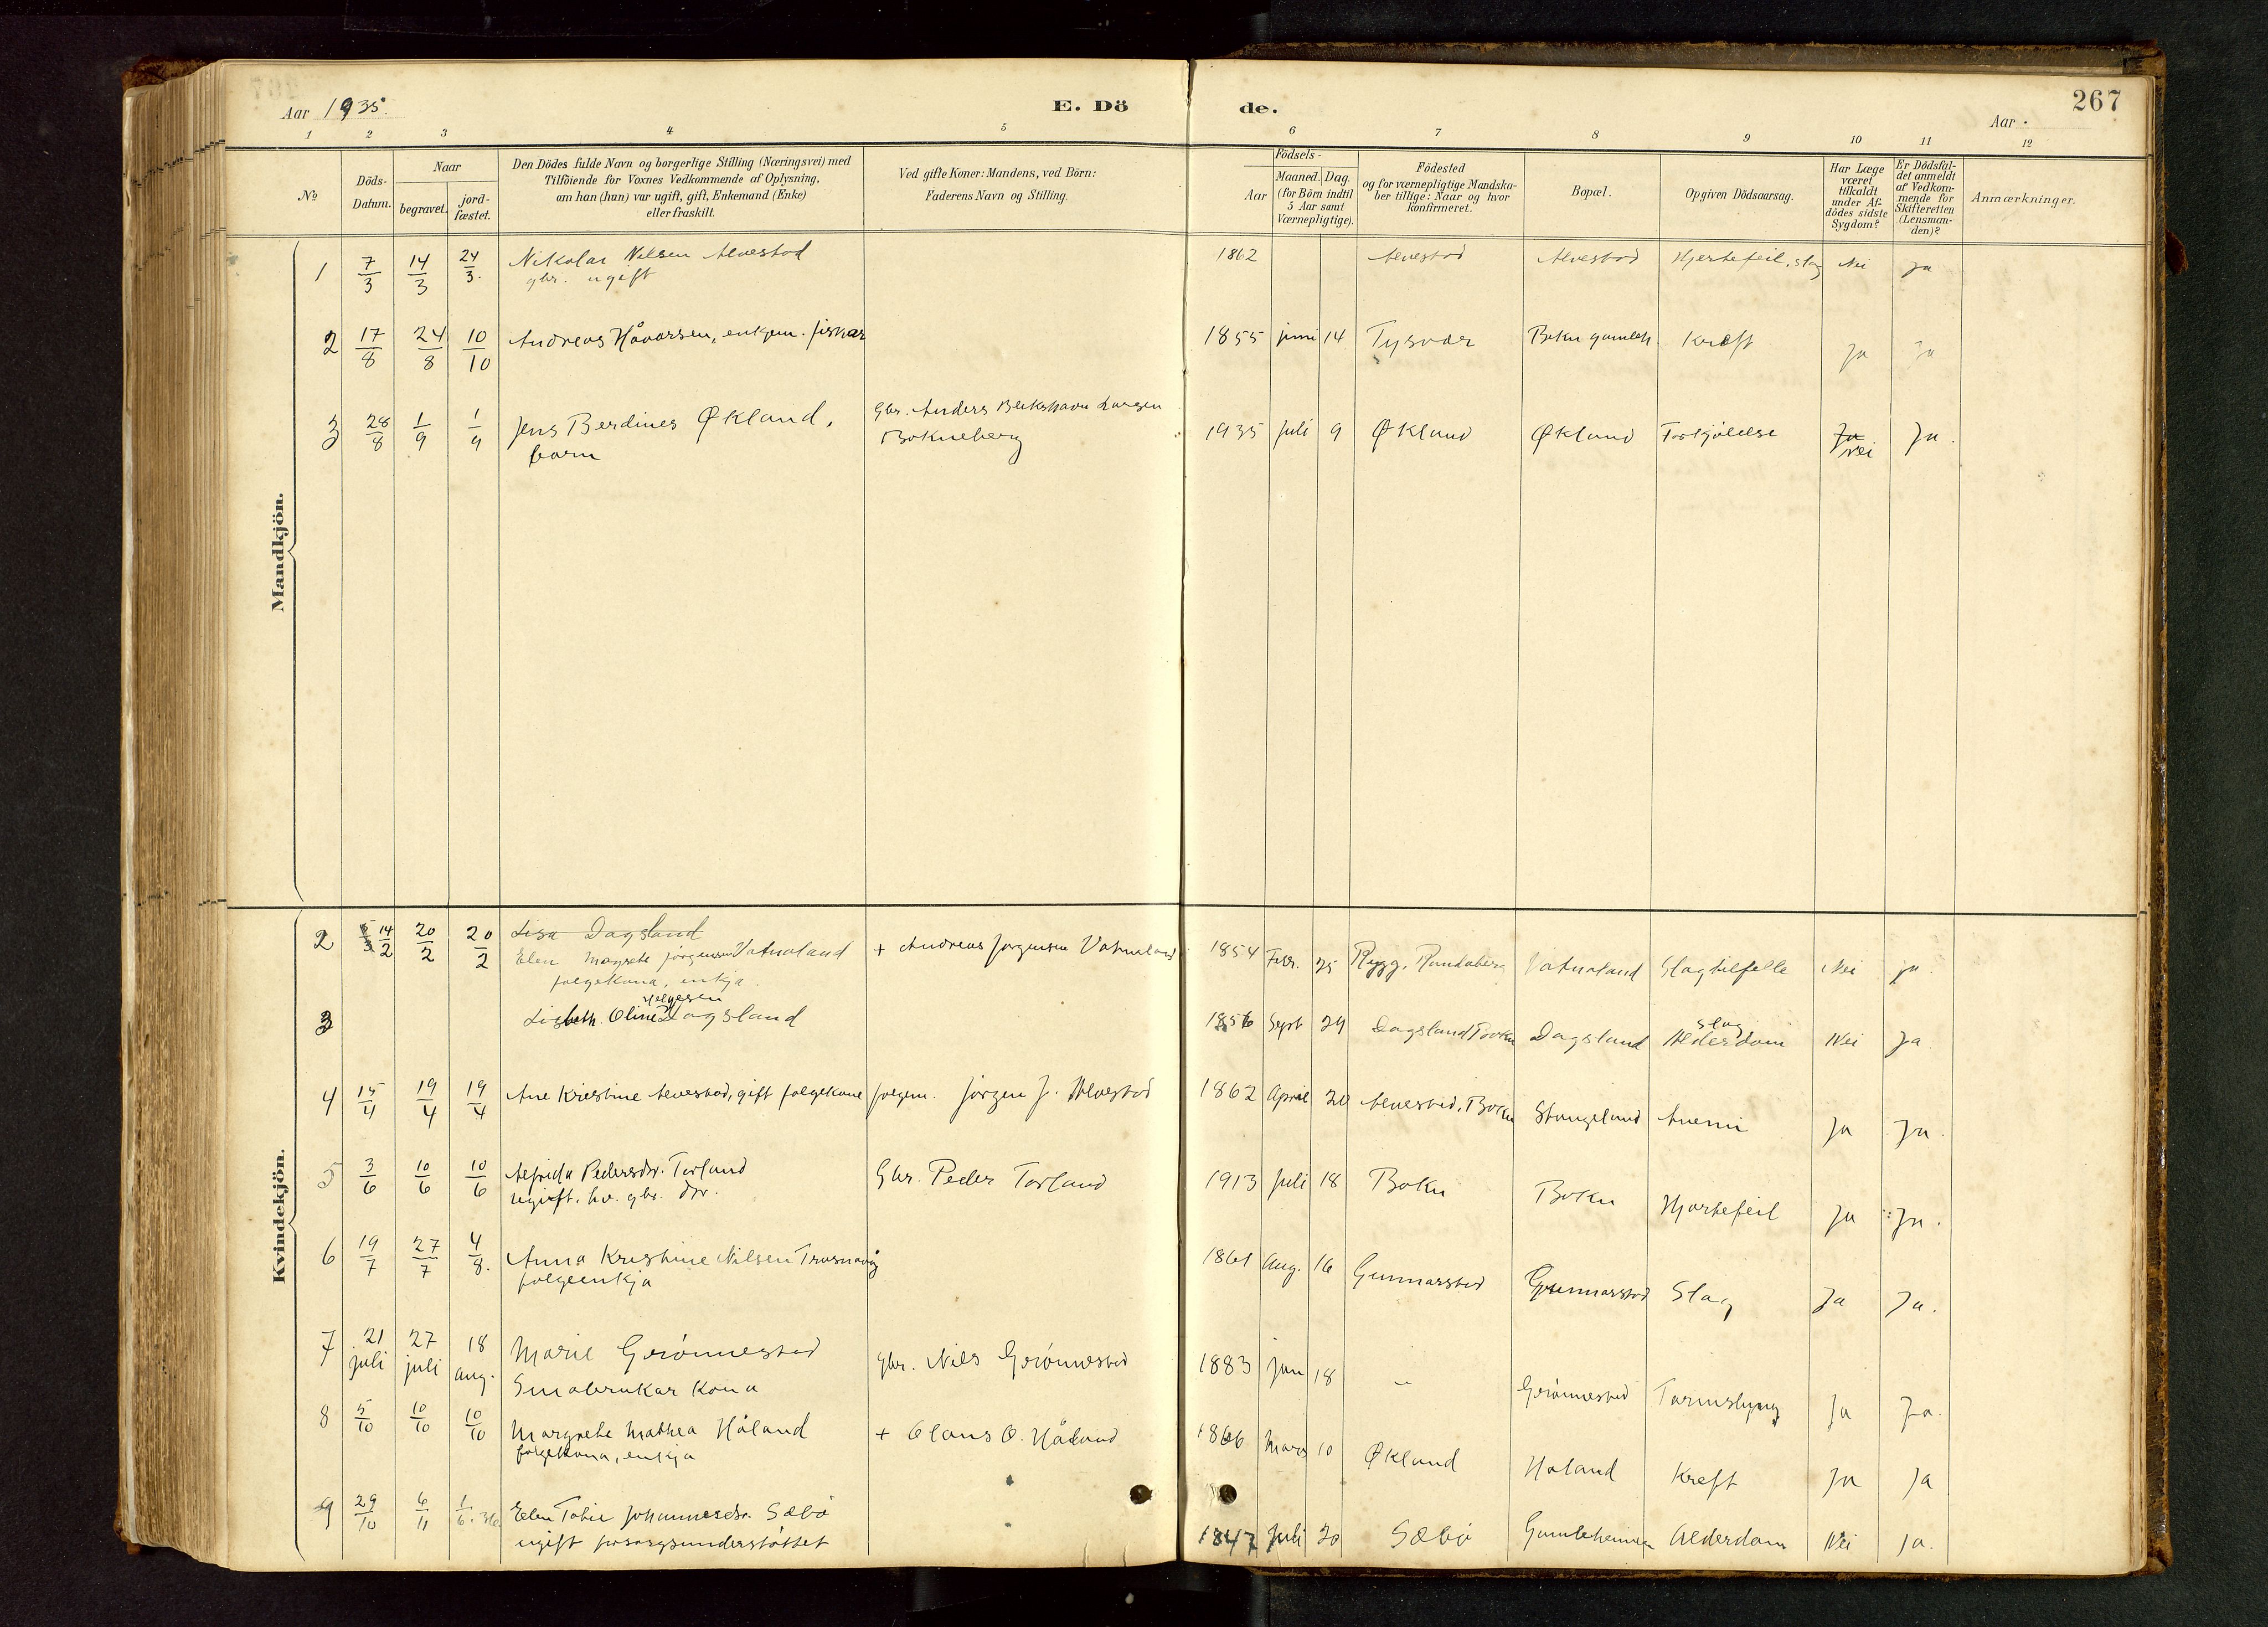 Aar 1935.
E. Dö
de.
Aar
267
1 2 3 4 5 6 7 8 9 10 11 12
№
Döds-
Datum.
Naar
begravet.
jord-
fæstet.
Den Dödes fulde Navn og borgerlige Stilling (Næringsvei) med
Tilföiende for Voxnes Vedkommende af Oplysning,
om han (hun) var ugift, gift, Enkemand (Enke)
eller fraskilt.
Ved gifte Koner: Mandens, ved Börn:
Faderens Navn og Stilling.
Födsels-
Aar
Maaned. Dag.
(for Börn indtil
5 Aar samt
Værnepligtige).
Födested
og for værnepligtige Mandska-
ber tillige: Naar og hvor
konfirmeret.
Bopæl.
Opgiven Dödsaarsag.
Har Læge
været
tilkaldt
under Af-
dödes sidste
Sygdom?
Er Dödsfal-
det anmeldt
af Vedkom-
mende for
Skifteretten
(Lensman-
den)?
Anmærkninger.
Mandkjön.
1 7/3 14/3 24/3. Nikolai Nilsen Alvestad 1862 Alvestad Alvestad Hjertefeil, slag Nei Ja
gbr. ugift
2 17/8 24/8 10/10 Andreas Håvarsen, enkjem. fiskar 1855 juni 14 Tysvær Bokn gamleh. Kreft Ja Ja
3 28/8 1/9 1/9 Jens Berdines Økland, Gbr. Anders
Bokneberg 1935 Juli 9 Økland Økland Forkjölelse Ja Ja.
barn nei
Kvindekjön.
2 5/3 14/2 20/2 20/2 Lisa Dagsland
Elen Magrete Jörgensen Vatnaland + Andreas Jörgensen Vatnaland 1854 Febr. 25 Rygg, Randaberg Vatnaland Slagtilfelle Nei ja.
folgekona, enkja.
Helgesen
3 Lisbeth. Oline Dagsland 1856 Sept 29 Dagsland Bokn Dagsland Alderdom Nei Ja.
slag
4 15/4 19/4 19/4 Ane Kristine Alvestad, gift folgekone folgem. Jörgen J. Alvestad 1862 April 20 Alvestad, Bokn Stangeland Anemi Ja Ja.
5 3/6 10/6 10/6 Alfrida Pedersdtr. Torland Gbr. Peder Torland 1913 Juli 18 Bokn Bokn Hjartefeil Ja Ja.
ugift. hv. gbr. dtr.
6 19/7 27/7 4/8. Anna Kristine Nilsen Trosnavåg 1861 Aug. 16 Gunnarstad Gunnarstad Slag Ja Ja.
folgeenkja
7 21 juli 27 juli 18 aug. Marie Grönnestad gbr. Nils Grönnestad 1883 Jan 18 — Grönnestad Tarmslyng Ja Ja.
Småbrukar kona
8 5/10 10/10 10/10 Margrete Mathea Håland + Olaus O. Håland 1866 Mars 10 Økland Håland Kreft Ja Ja
folgekona, enkja
9 29/10 6/11 1/6. 36 Elen Tobie Johannesdr. Sæbö 1847 Juli 20 Sæbö Gamleheimen Alderdom Nei Ja.
ugift forsorgsunderstöttet